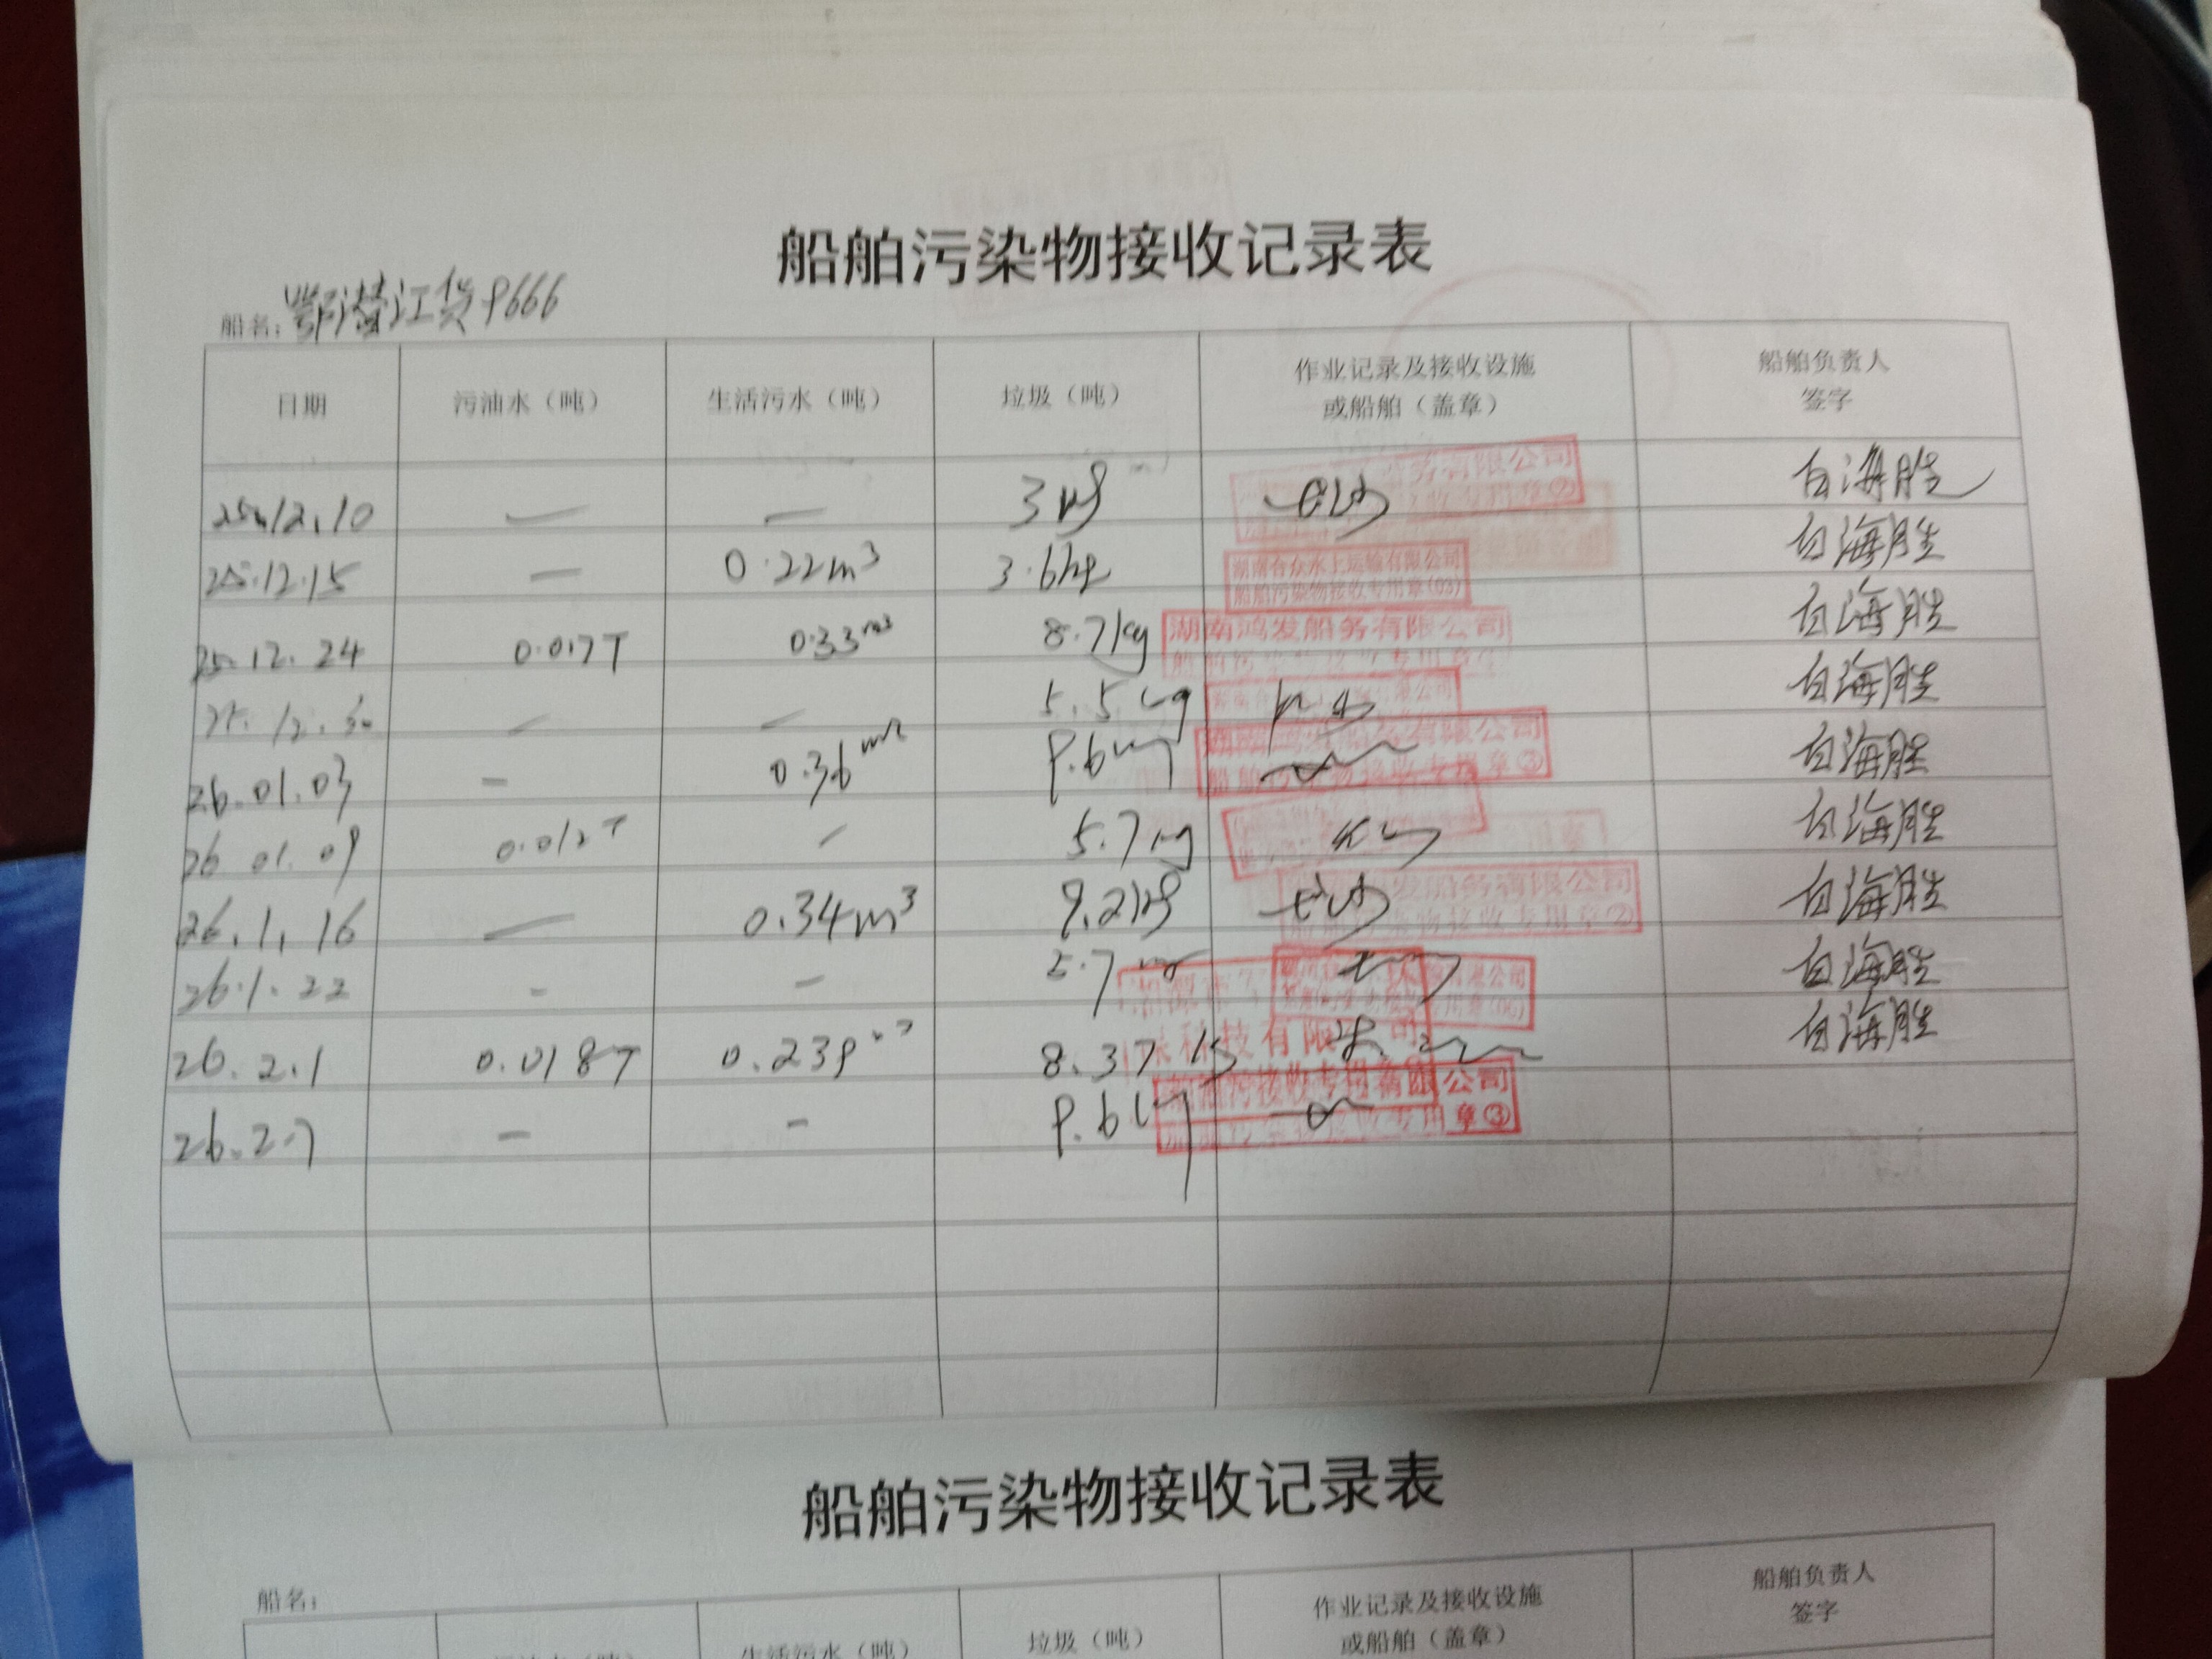 船舶污染物接收记录表
船名: 鄂潜江货9666
日期 污油水（吨） 生活污水（吨） 垃圾（吨） 作业记录及接收设施或船舶（盖章） 船舶负责人签字
25.12.10 — — 3kg 务有限公司 白海胜
25.12.15 — 0.22m³ 3.6kg 湖南合众水上运输有限公司 船舶污染物接收专用章(03) 白海胜
25.12.24 0.017T 0.33m³ 8.7kg 湖南鸿发船务有限公司 白海胜
25.12.30 — — 5.5kg 白海胜
26.01.03 — 0.36m³ 9.6kg 湖南鸿发船务有限公司 船舶污染物接收专用章③ 白海胜
26.01.09 0.012T — 5.7kg 白海胜
26.1.16 — 0.34m³ 9.2kg 发船务有限公司 污染物接收专用章② 白海胜
26.1.22 - - 5.7 白海胜
26.2.1 0.018T 0.239 8.37 科技有限公司 白海胜
26.2.7 — - 9.6kg 有限公司 专用章③
船舶污染物接收记录表
船名:
污油水（吨） 生活污水（吨） 垃圾（吨） 作业记录及接收设施或船舶（盖章） 船舶负责人签字